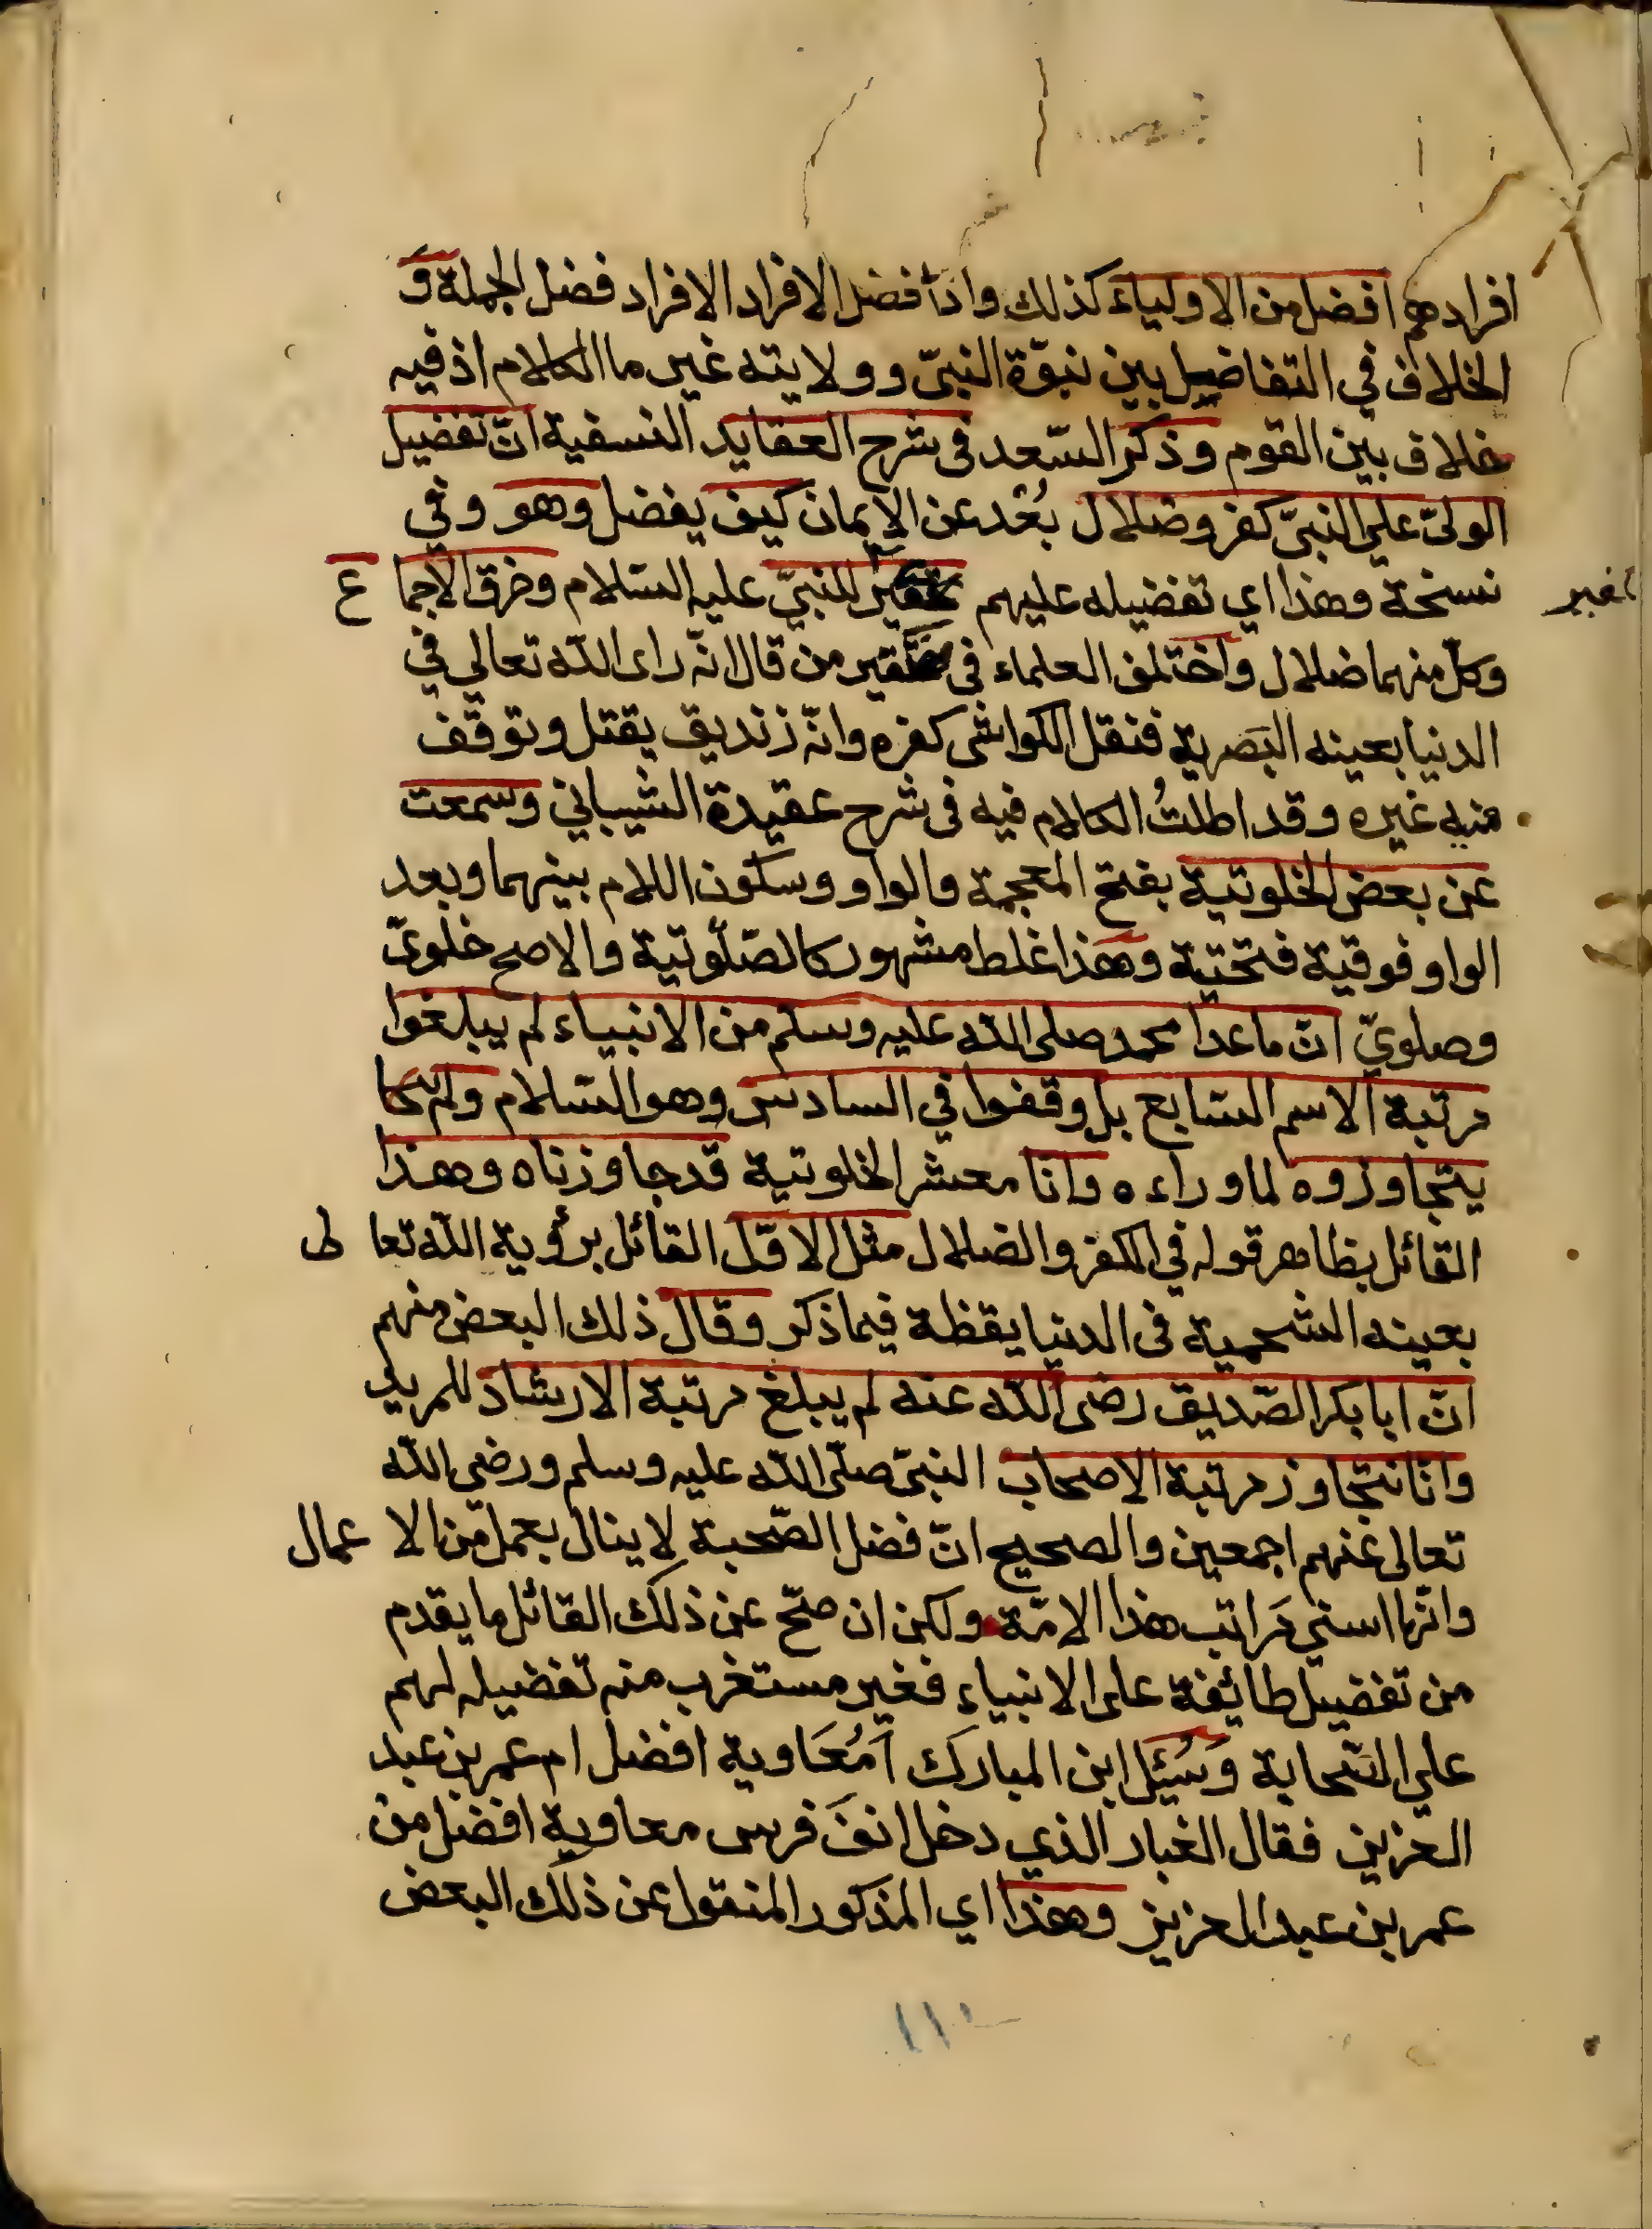 افرادهم افضل من الاولياء كذلك واذا فضل الافراد الافراد فضل الجملة و
الخلاف في التفاضيل بين نبوّة النبيّ وولايته غير ما الكلام اذ فيه
خلاف بين القوم وذكر السّعد في شرح العقايد النسفية انّ تفضيل
الوليّ علي النبيّ كفر وضلال بُعْد عن الايمان كيف يفضل وهو وفي
نسخة وهذا اي تفضيله عليهم تحقير للنبيّ عليه السّلام وخرق الاجما ع
وكلّ منهما ضلال واختلف العلماء في من قال انّه راى الله تعالي في
الدنيا بعينه البَصرية فنقل الكواشى كفره وانّه زنديق يقتل وتوقّف
فيه غيره وقد اطلتُ الكلام فيه فى شرح عقيدة الشيباني وسمعت
عن بعض الخلوتية بفتح المعجمة والواو وسكون اللام بينهما وبعد
الواو فوقية فتحتية وهذا غلط مشهور كالصّلَوتية والاصح خلويّ
وصلويّ انّ ما عدا محمد صلى الله عليه وسلم من الانبياء لم يبلغوا
مرتبة الاسم السّابع بل وقفوا في السادس وهو السّلام ولم
يتجاوزوه لما وراءه وانّا معشر الخلوتية قد جاوزناه وهذا
القائل بظاهر قوله في الكفر والضلال مثل الاوّل القائل برؤية الله تعا لى
بعينه الشحمية فى الدنيا يقظة فيما ذكر وقال ذلك البعض منهم
انّ ابا بكر الصّديق رضى الله عنه لم يبلغ مرتبة الارشاد للمريد
وانّا نتجاوز مرتبة الاصحاب النبىّ صلّى الله عليه وسلم ورضي الله
تعالى عنهم اجمعين والصحيح انّ فضل الصّحبة لا ينال بعمل من الا عمال
وانّها اسني مَراتب هذا الامّة ولكن ان صحّ عن ذلك القائل ما يقدم
من تفضيل طائفة على الانبياء فغير مستغرب منه تفضيله لهم
علي الصّحابة وَسُئِل ابن المبارك اَمُعَاوية افضل ام عمر بن عبد
العزيز فقال الغبار الذي دخل انفَ فرس معاوية افضل من
عمر بن عبد العزيز وهذا اي المذكور المنقول عن ذلك البعض